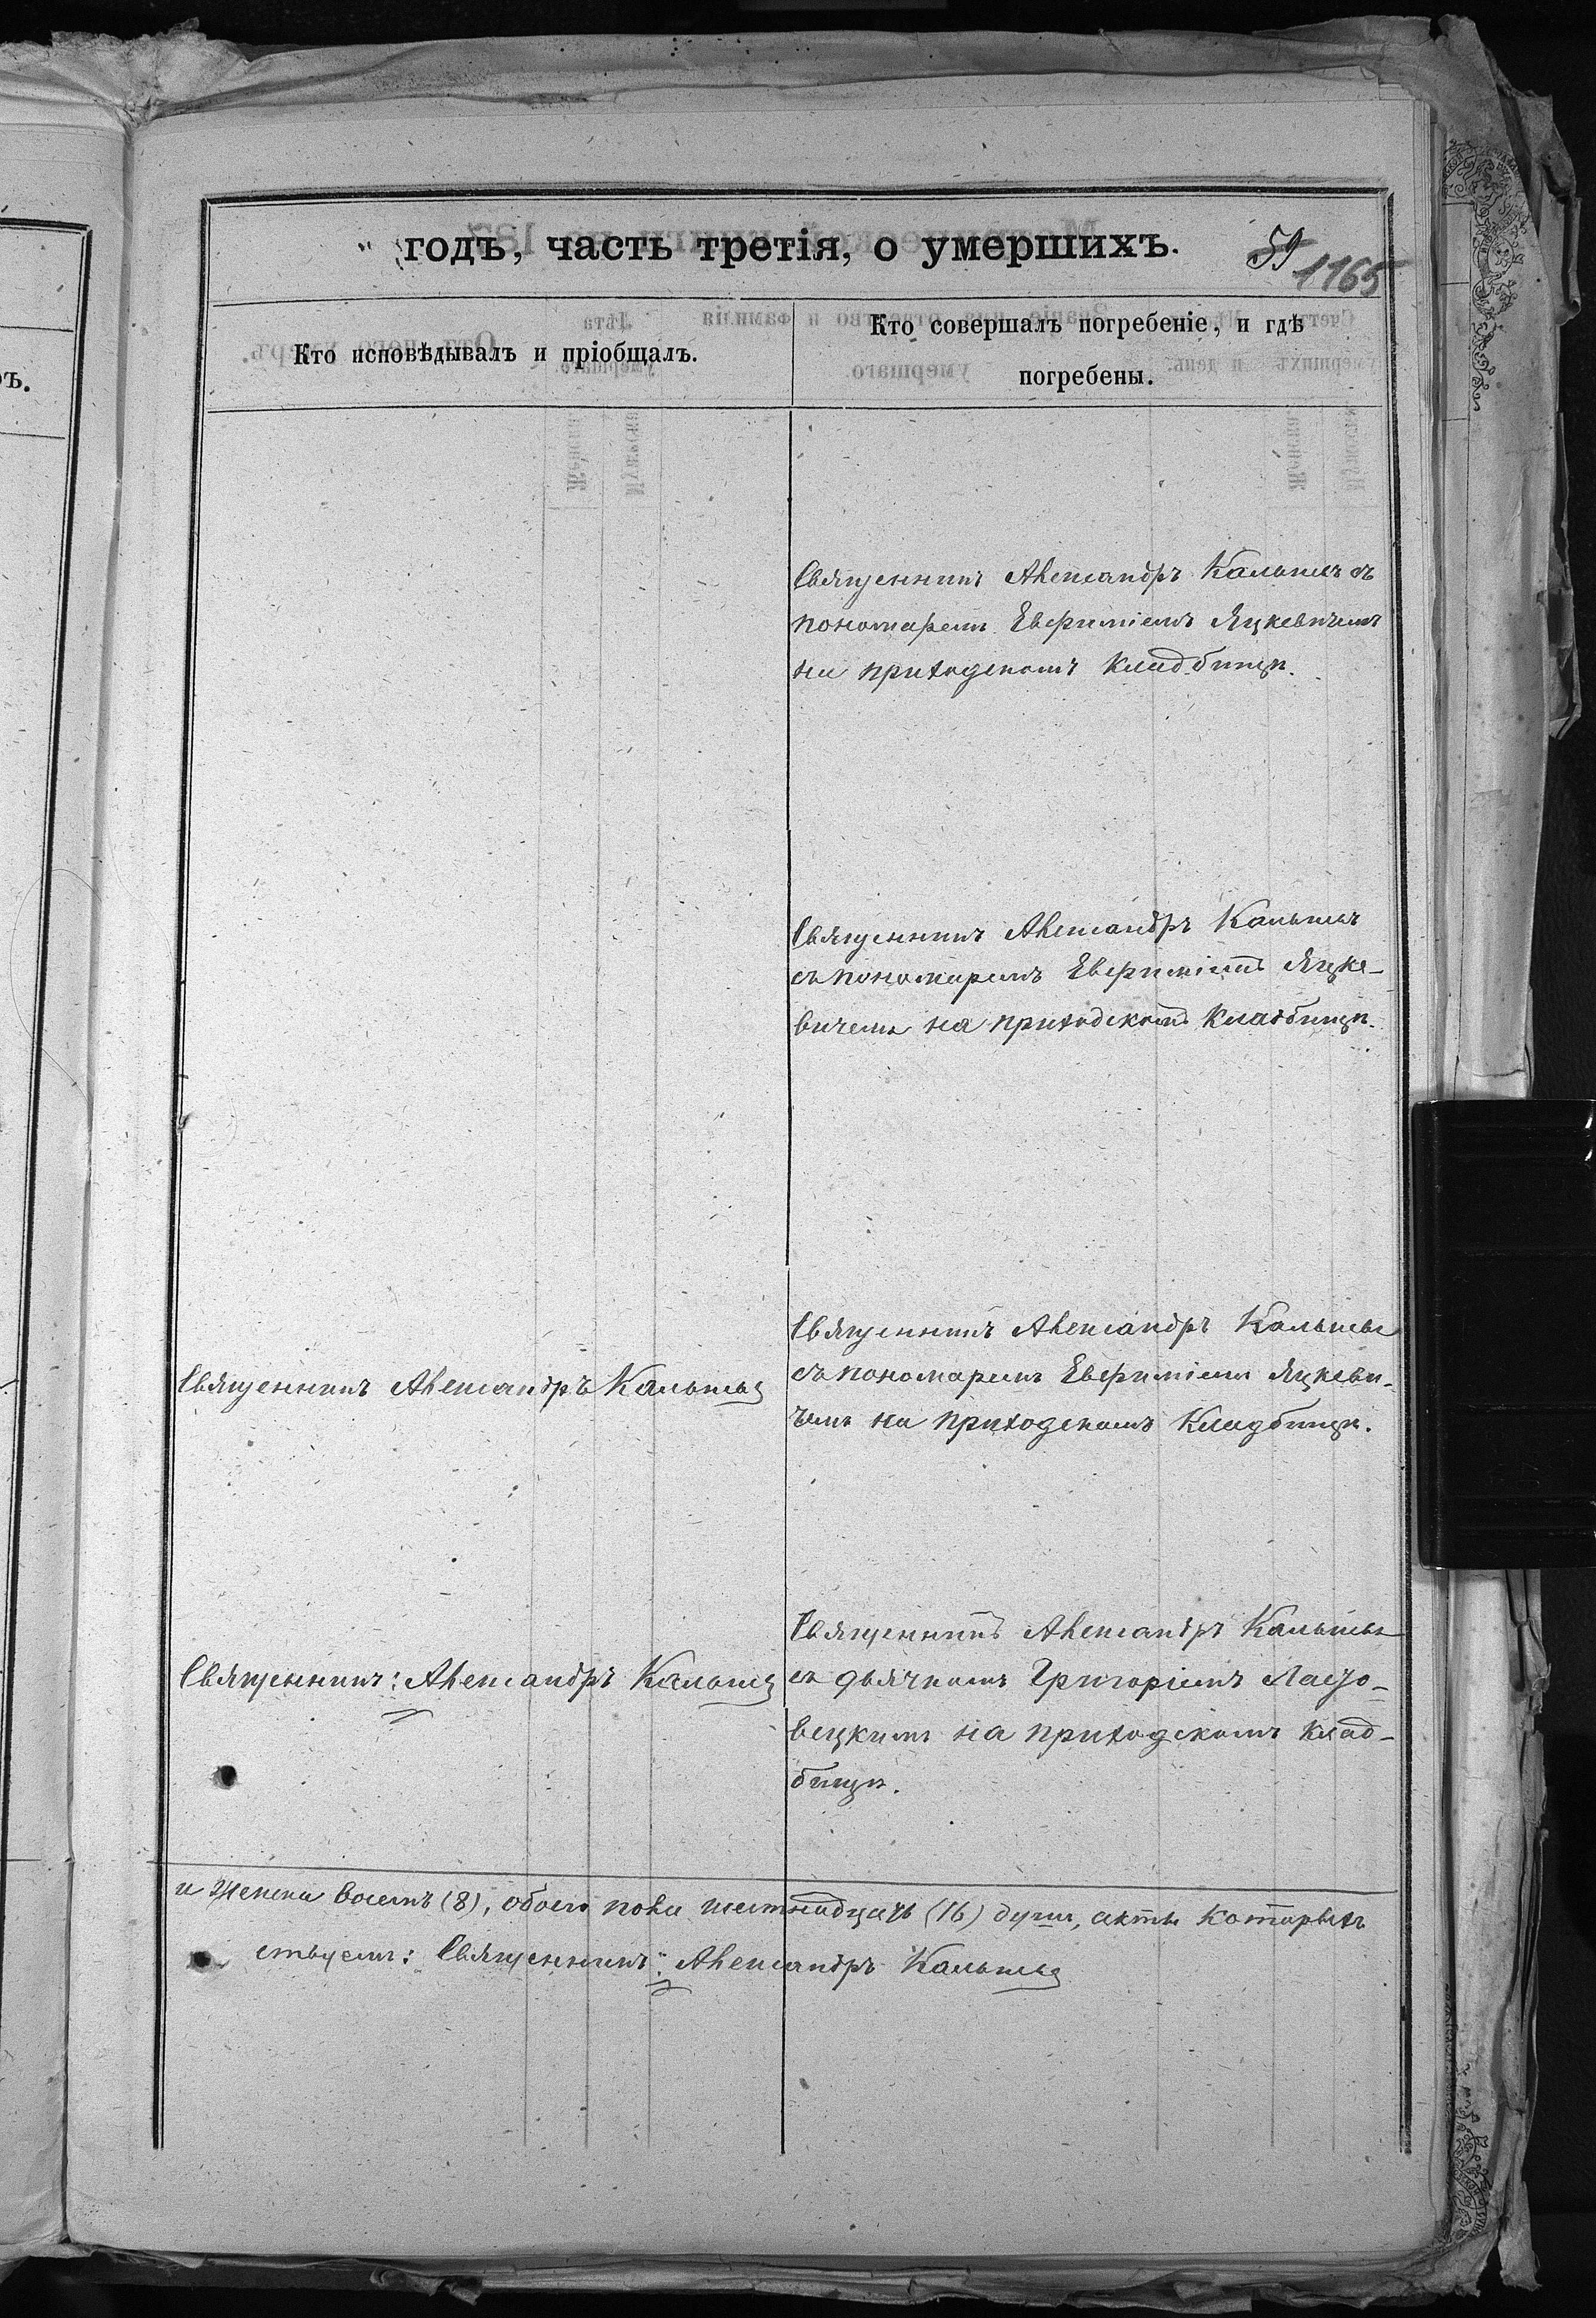 годъ, часть третія, о умершихъ.
59
1165
Кто исповѣдывалъ и пріобщалъ.
Кто совершалъ погребеніе, и гдѣ
погребены.
Священникъ Александръ Кальишъ съ
пономаремъ Евфиміемъ Яцкевичемъ
на приходскомъ кладбищѣ.
Священникъ Александръ Кальишъ
съ пономаремъ Евфиміемъ Яцке-
вичемъ на приходскомъ кладбищѣ.
Священникъ Александръ Кальишъ
съ пономаремъ Евфиміемъ Яцкеви-
чемъ на приходскомъ кладбищѣ.
Священникъ Александръ Кальишъ
Священникъ Александръ Кальишъ
съ дьячкомъ Григоріемъ
вецкимъ на приходскомъ клад-
бищѣ.
Священникъ: Александръ Кальишъ
и женска восемъ (8), обоего пола шестнадцать (16) душъ, акты которыхъ
ствуемъ: Священникъ: Александръ Кальишъ
ъ.